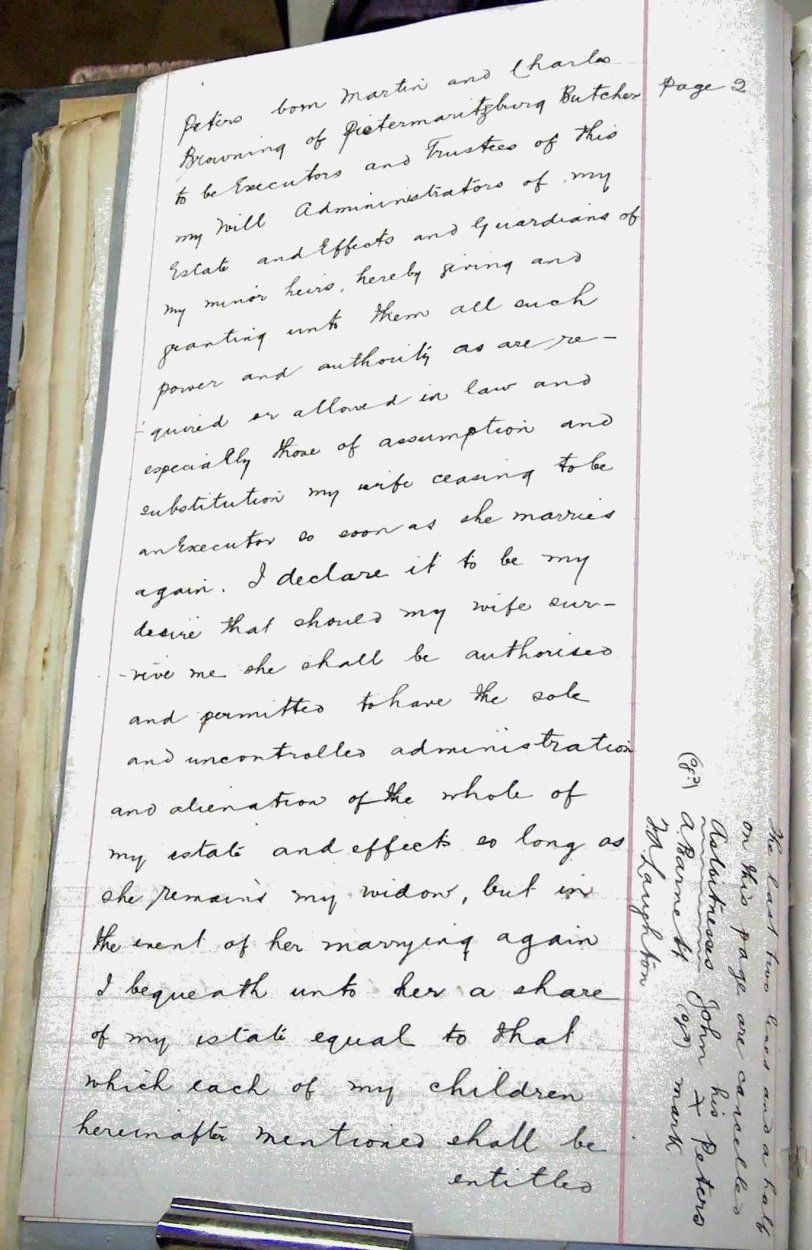 Page 2
Peters born Martin and Charles
Browning of Pietermaritzburg Butcher
to be Executors and Trustees of this
my Will Admininistrators of my
Estate and Effects and Guardians of
my minor heirs, hereby giving and
granting unto them all such
power and authority as are re-
quired or allowed in law and
especially those of assumption and
substitution my wife ceasing to be
an Executor so soon as she marries
again. I declare it to be my
desire that should my wife sur-
-vive me she shall be authorised
and permitted to have the sole
and uncontrolled administration
and alienation of the whole of
my estate and effects so long as
she remains my widow, but in
the event of her marrying again
I bequeath unto her a share
of my estate equal to that
which each of my children
hereinafter mentioned shall be
entitled
The last two lines and a half
on this page are cancelled
As witnesses John his x mark Peters
A Barnett
F A Laughton